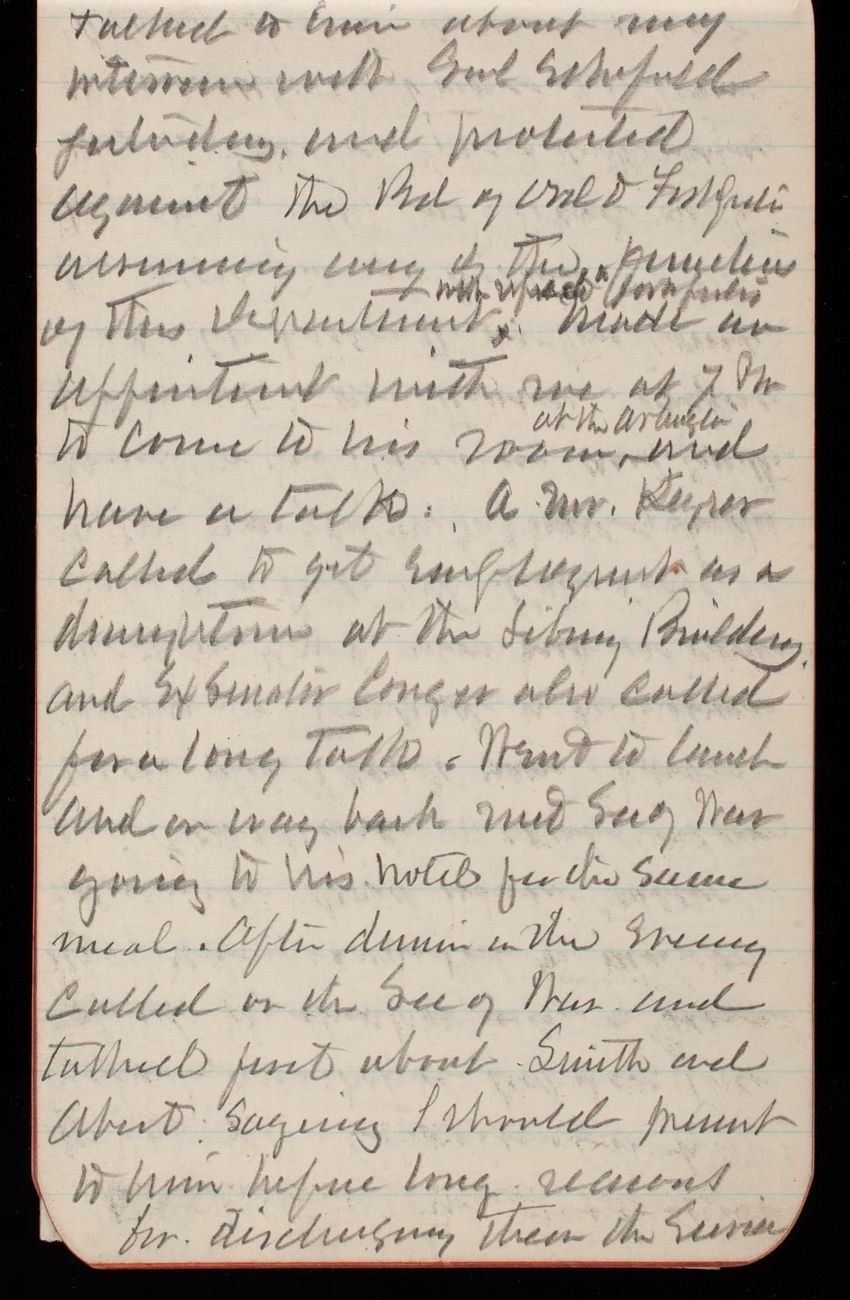 talked to him about my
interview with Genl Schofield
yesterday, and protested
against the Bd of Ord & Fortifi
assuming any of the functions
with regard fortifi
of this Department, made an
appointment with me at 7 PM
at the Arlington
to come to his room, and
have a talk. A Mr.
called to get employment as a
draughtsman at the Library Building,
and Ex Senator Conger also called
for a long talk. Went to lunch
and on way back met Sec of War
going to his hotel for the same
meal. After dinner in the evening
called on the Sec of War and
talked first about Smith and
Abert, saying I should present
to him before long reasons
for discharging them the Service